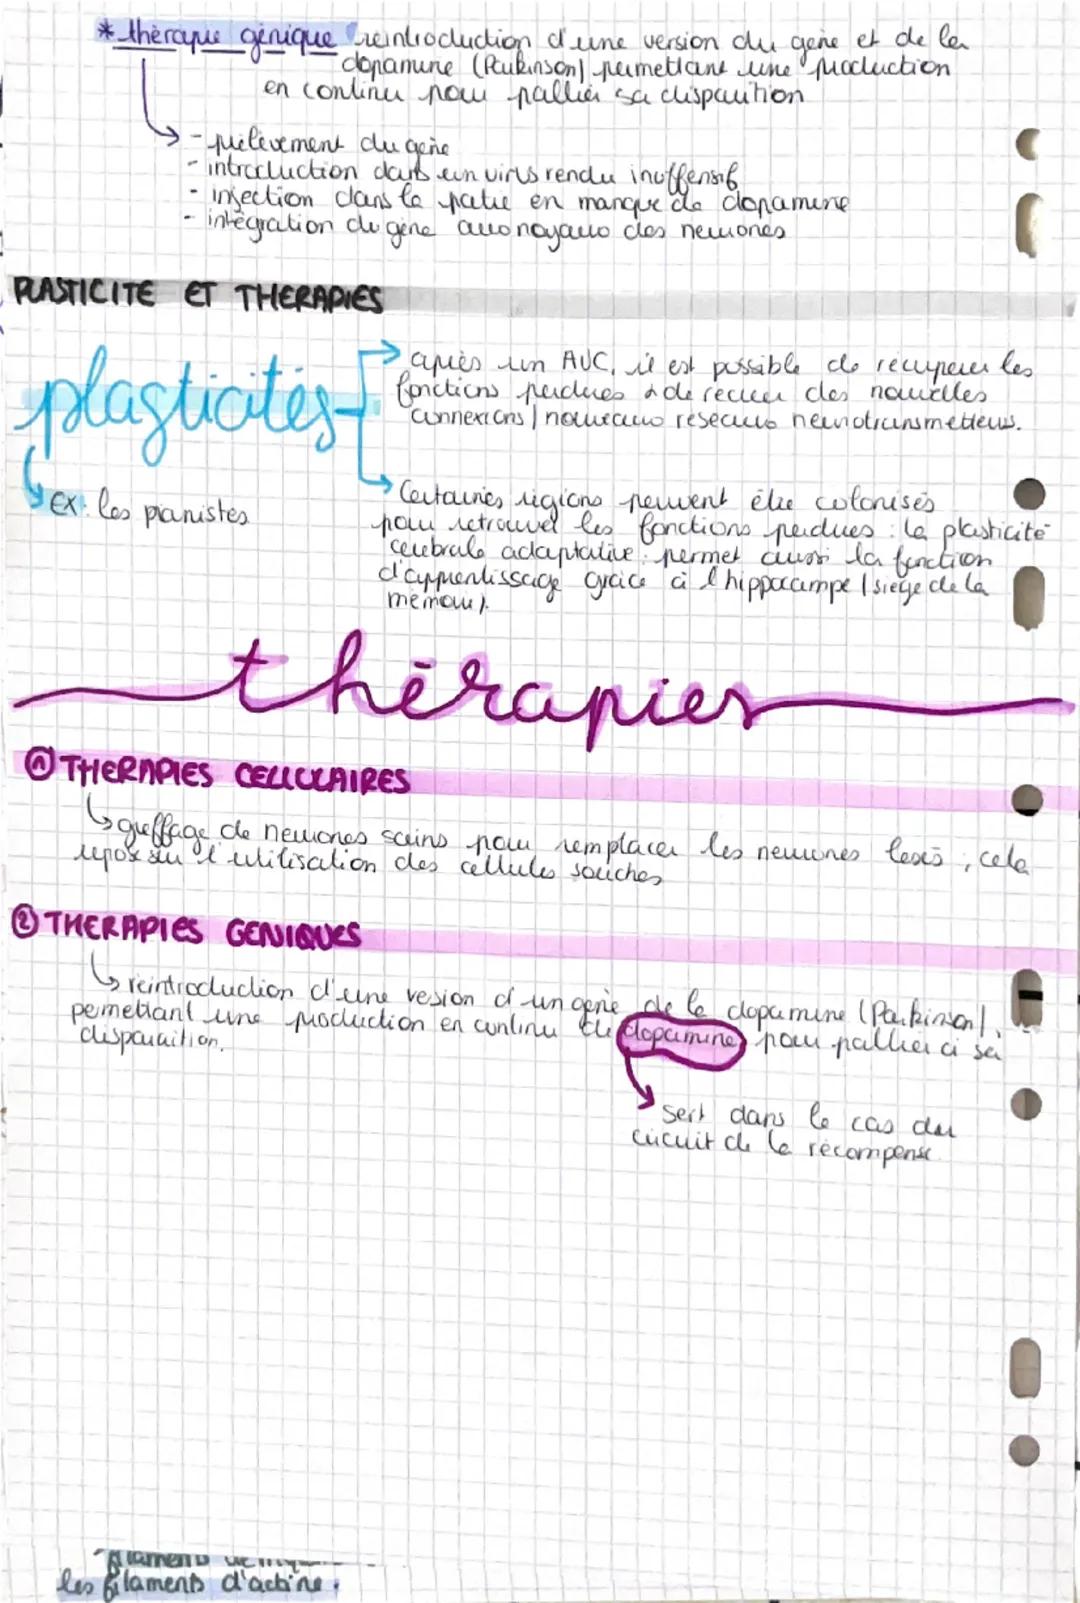 * thérapie génique réintroduction d'une version du gène et de la
dopamine (Parkinson) permettant une production
en continu pour pallier sa disparition
- prélèvement du gène
- introduction dans un virus rendu inoffensif
- injection dans la partie en manque de dopamine
- intégration du gène aux noyaux des neurones
PLASTICITE ET THERAPIES
plasticités
après un AVC, il est possible de récuperer les
fonctions perdues & de recréer des nouvelles
connexions / nouveaux reseaux neurotransmetteurs.
EX: les pianistes
Certaines régions peuvent être colonisés
pour retrouver les fonctions perdues : la plasticité
cérébrale adaptative : permet aussi la fonction
d'apprentissage grâce à l'hippocampe (siège de la
mémoire).
thérapies
① THERAPIES CELLULAIRES
greffage de neurones sains pour remplacer les neurones lesés ; cela
repose sur l'utilisation des cellules souches
② THERAPIES GENIQUES
réintroduction d'une version d'un gène de la dopamine (Parkinson),
permettant une production en continu de dopamine pour pallier à sa
disparaition.
sert dans le cas du
circuit de la récompense.
filaments de
les filaments d'actine.